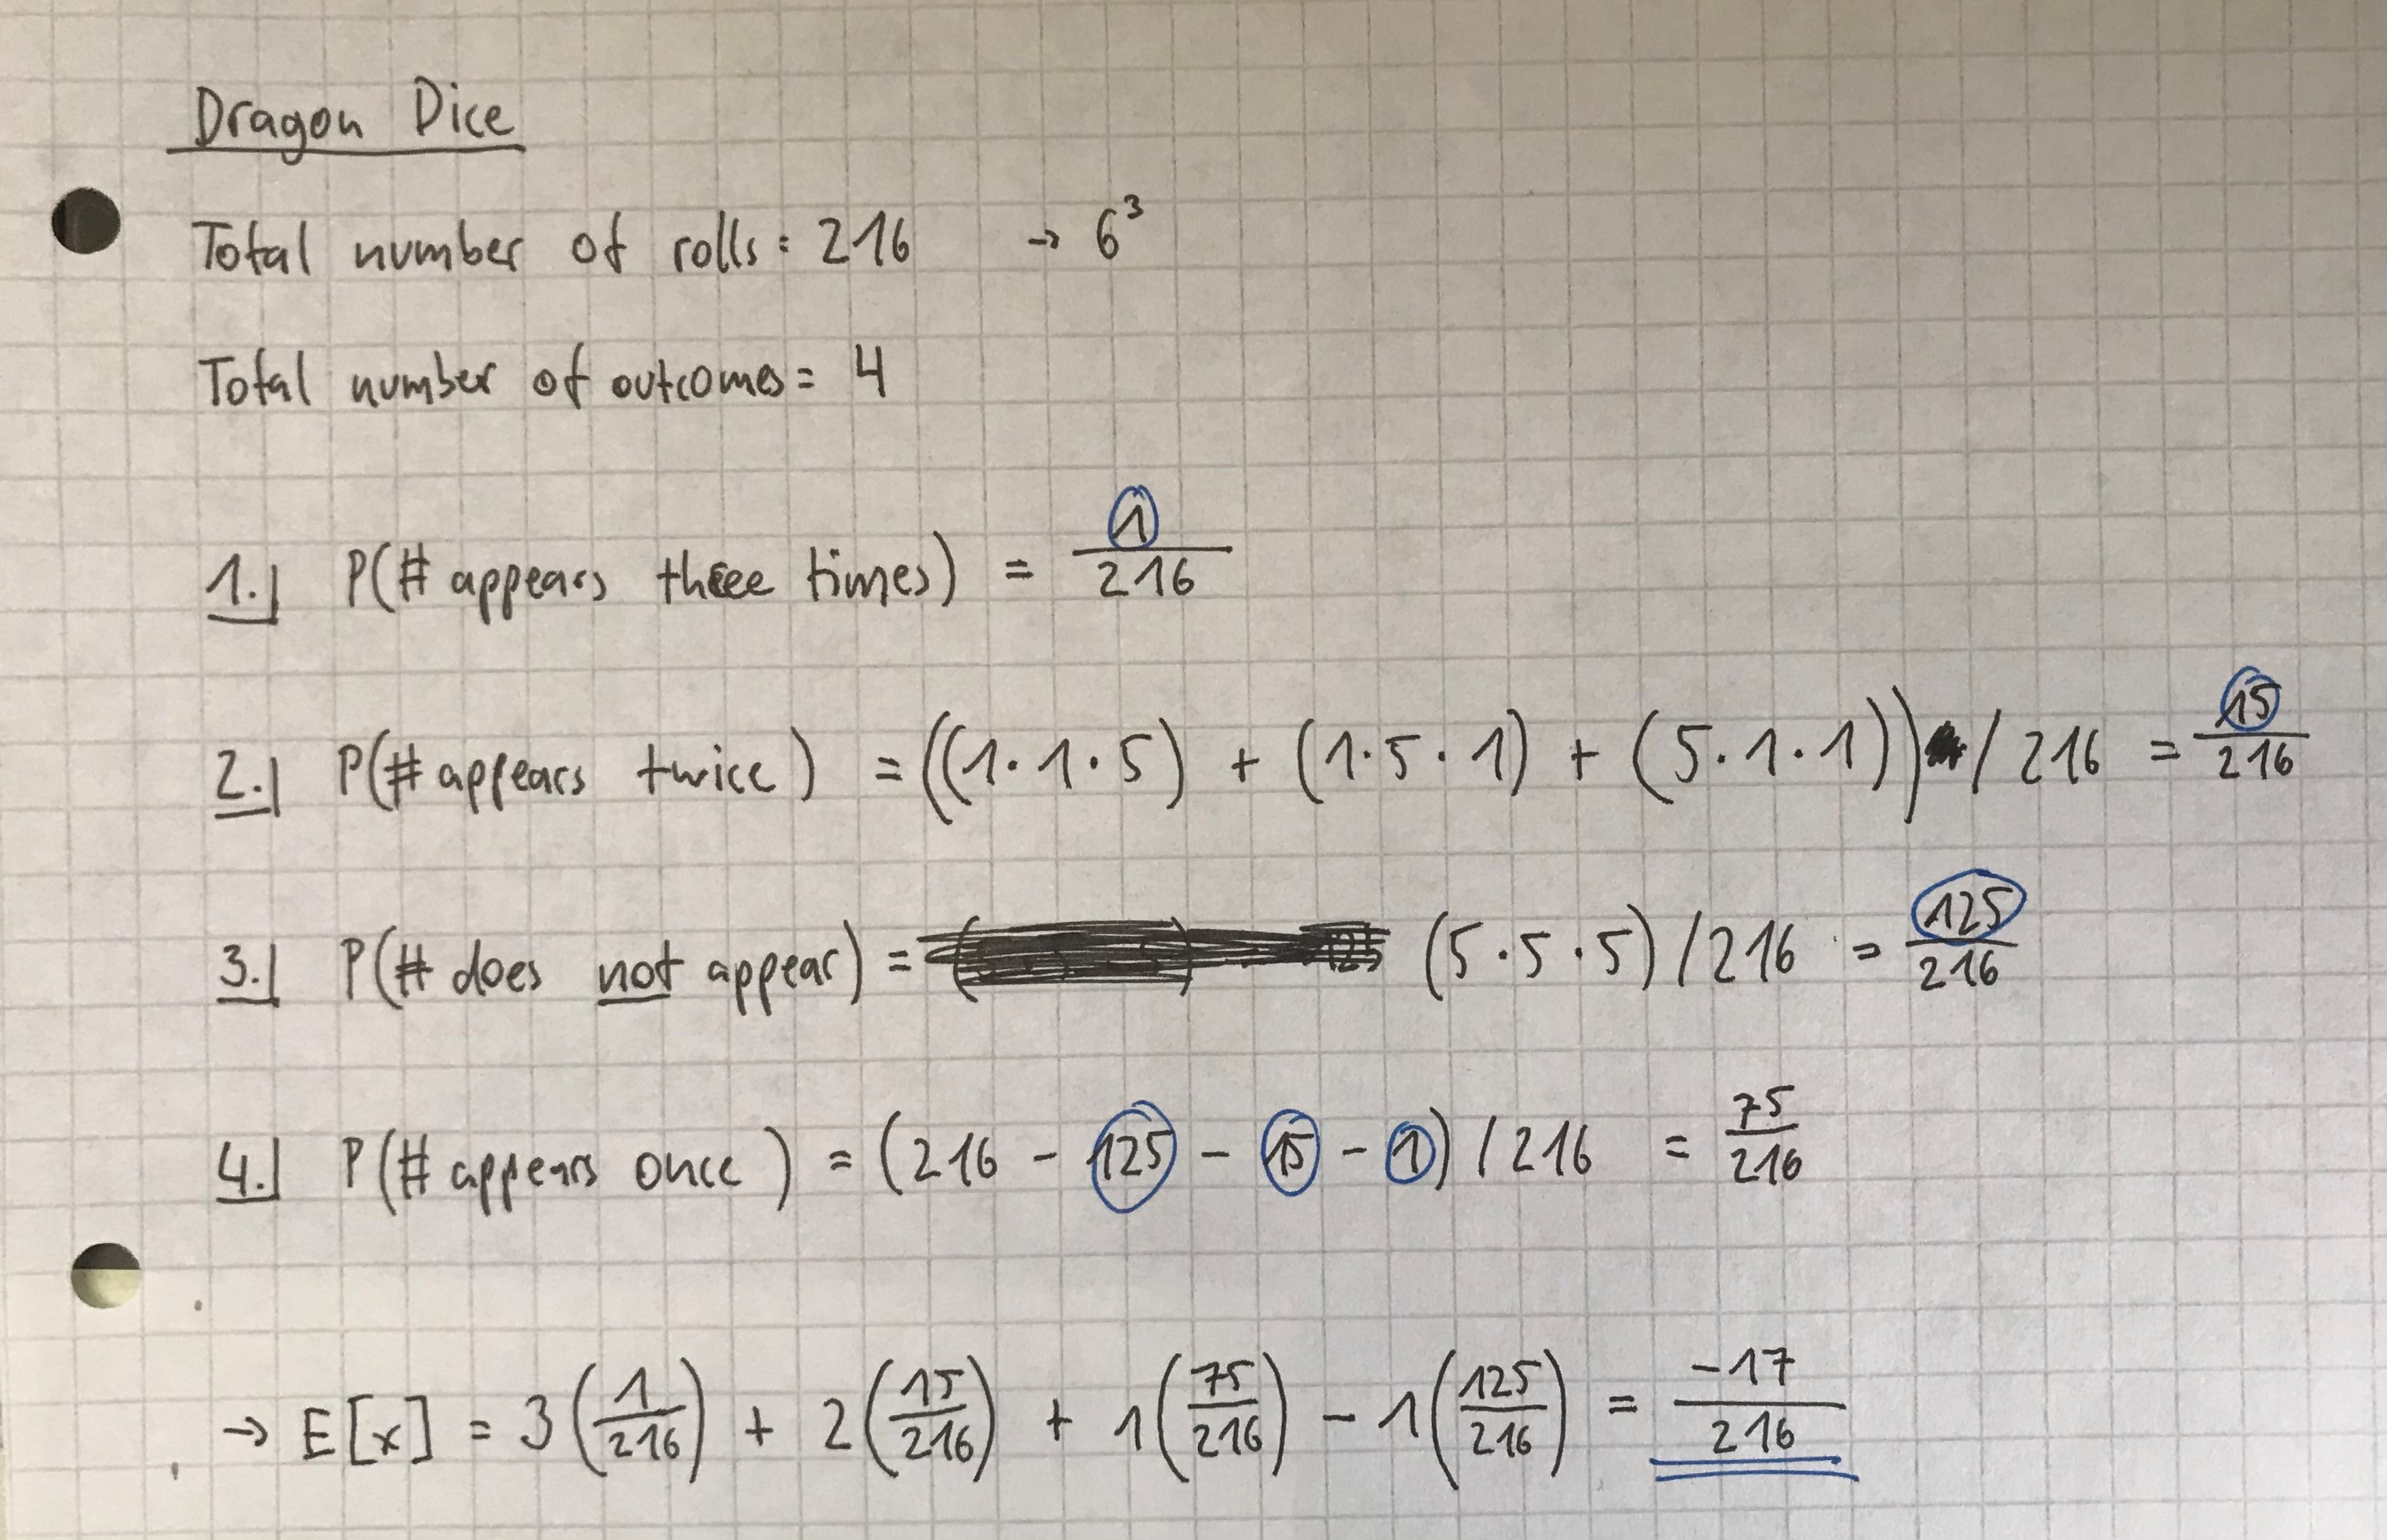 Dragon Dice
Total number of rolls: 216 → 6³
Total number of outcomes = 4
1.) P(# appears three times) = 1/216
2.) P(# appears twice) = ((1·1·5) + (1·5·1) + (5·1·1)) / 216 = 15/216
3.) P(# does not appear) = (5·5·5) / 216 = 125/216
4.) P(# appears once) = (216 - 125 - 15 - 1) / 216 = 75/216
→ E[x] = 3(1/216) + 2(15/216) + 1(75/216) - 1(125/216) = -17/216